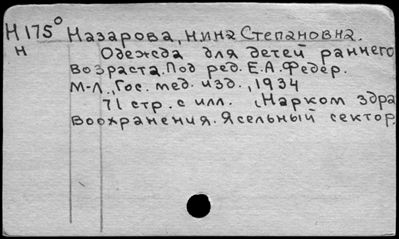 Н 175⁰ Назарова, Нина Степановна.
Н Одежда для детей раннего
возраста. Под ред. Е.А. Федер.
М-Л., Гос. мед. изд., 1934
71 стр. с илл. (Нарком здра
воохранения. Ясельный сектор.